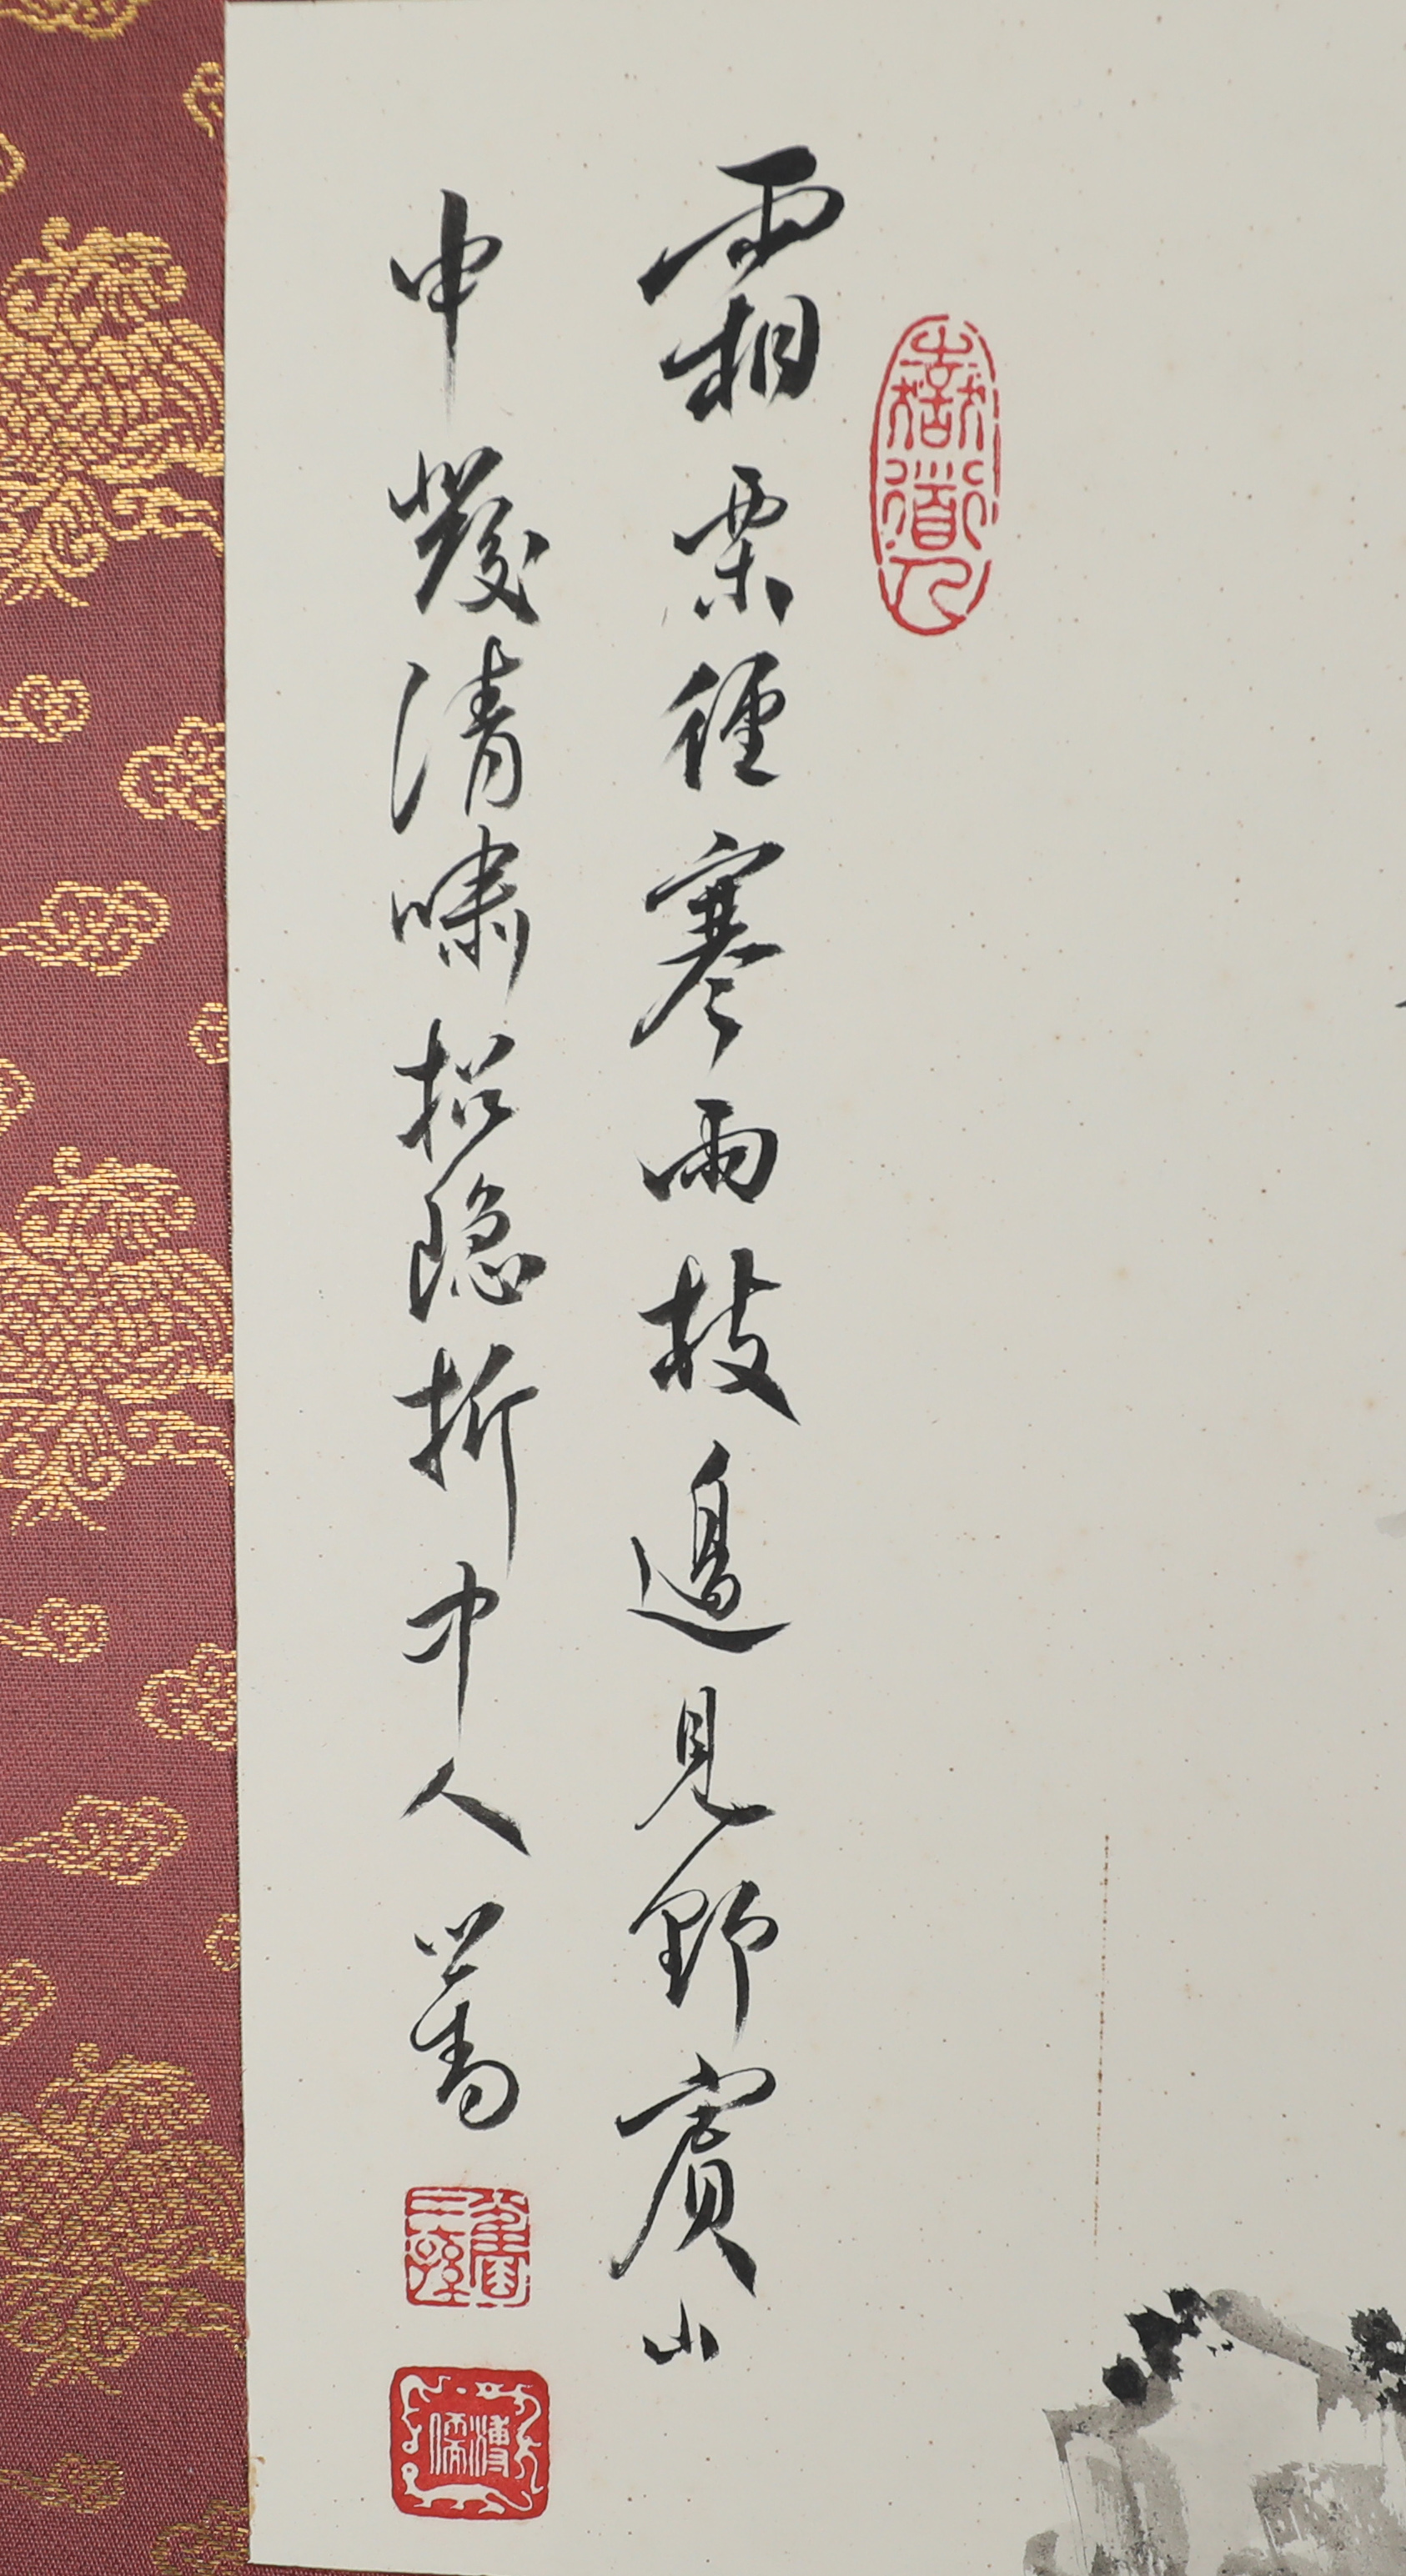 霜栗經寒雨枝邊見野賓山
中發清嘯招隱折中人 心畬
舊王孫
溥儒